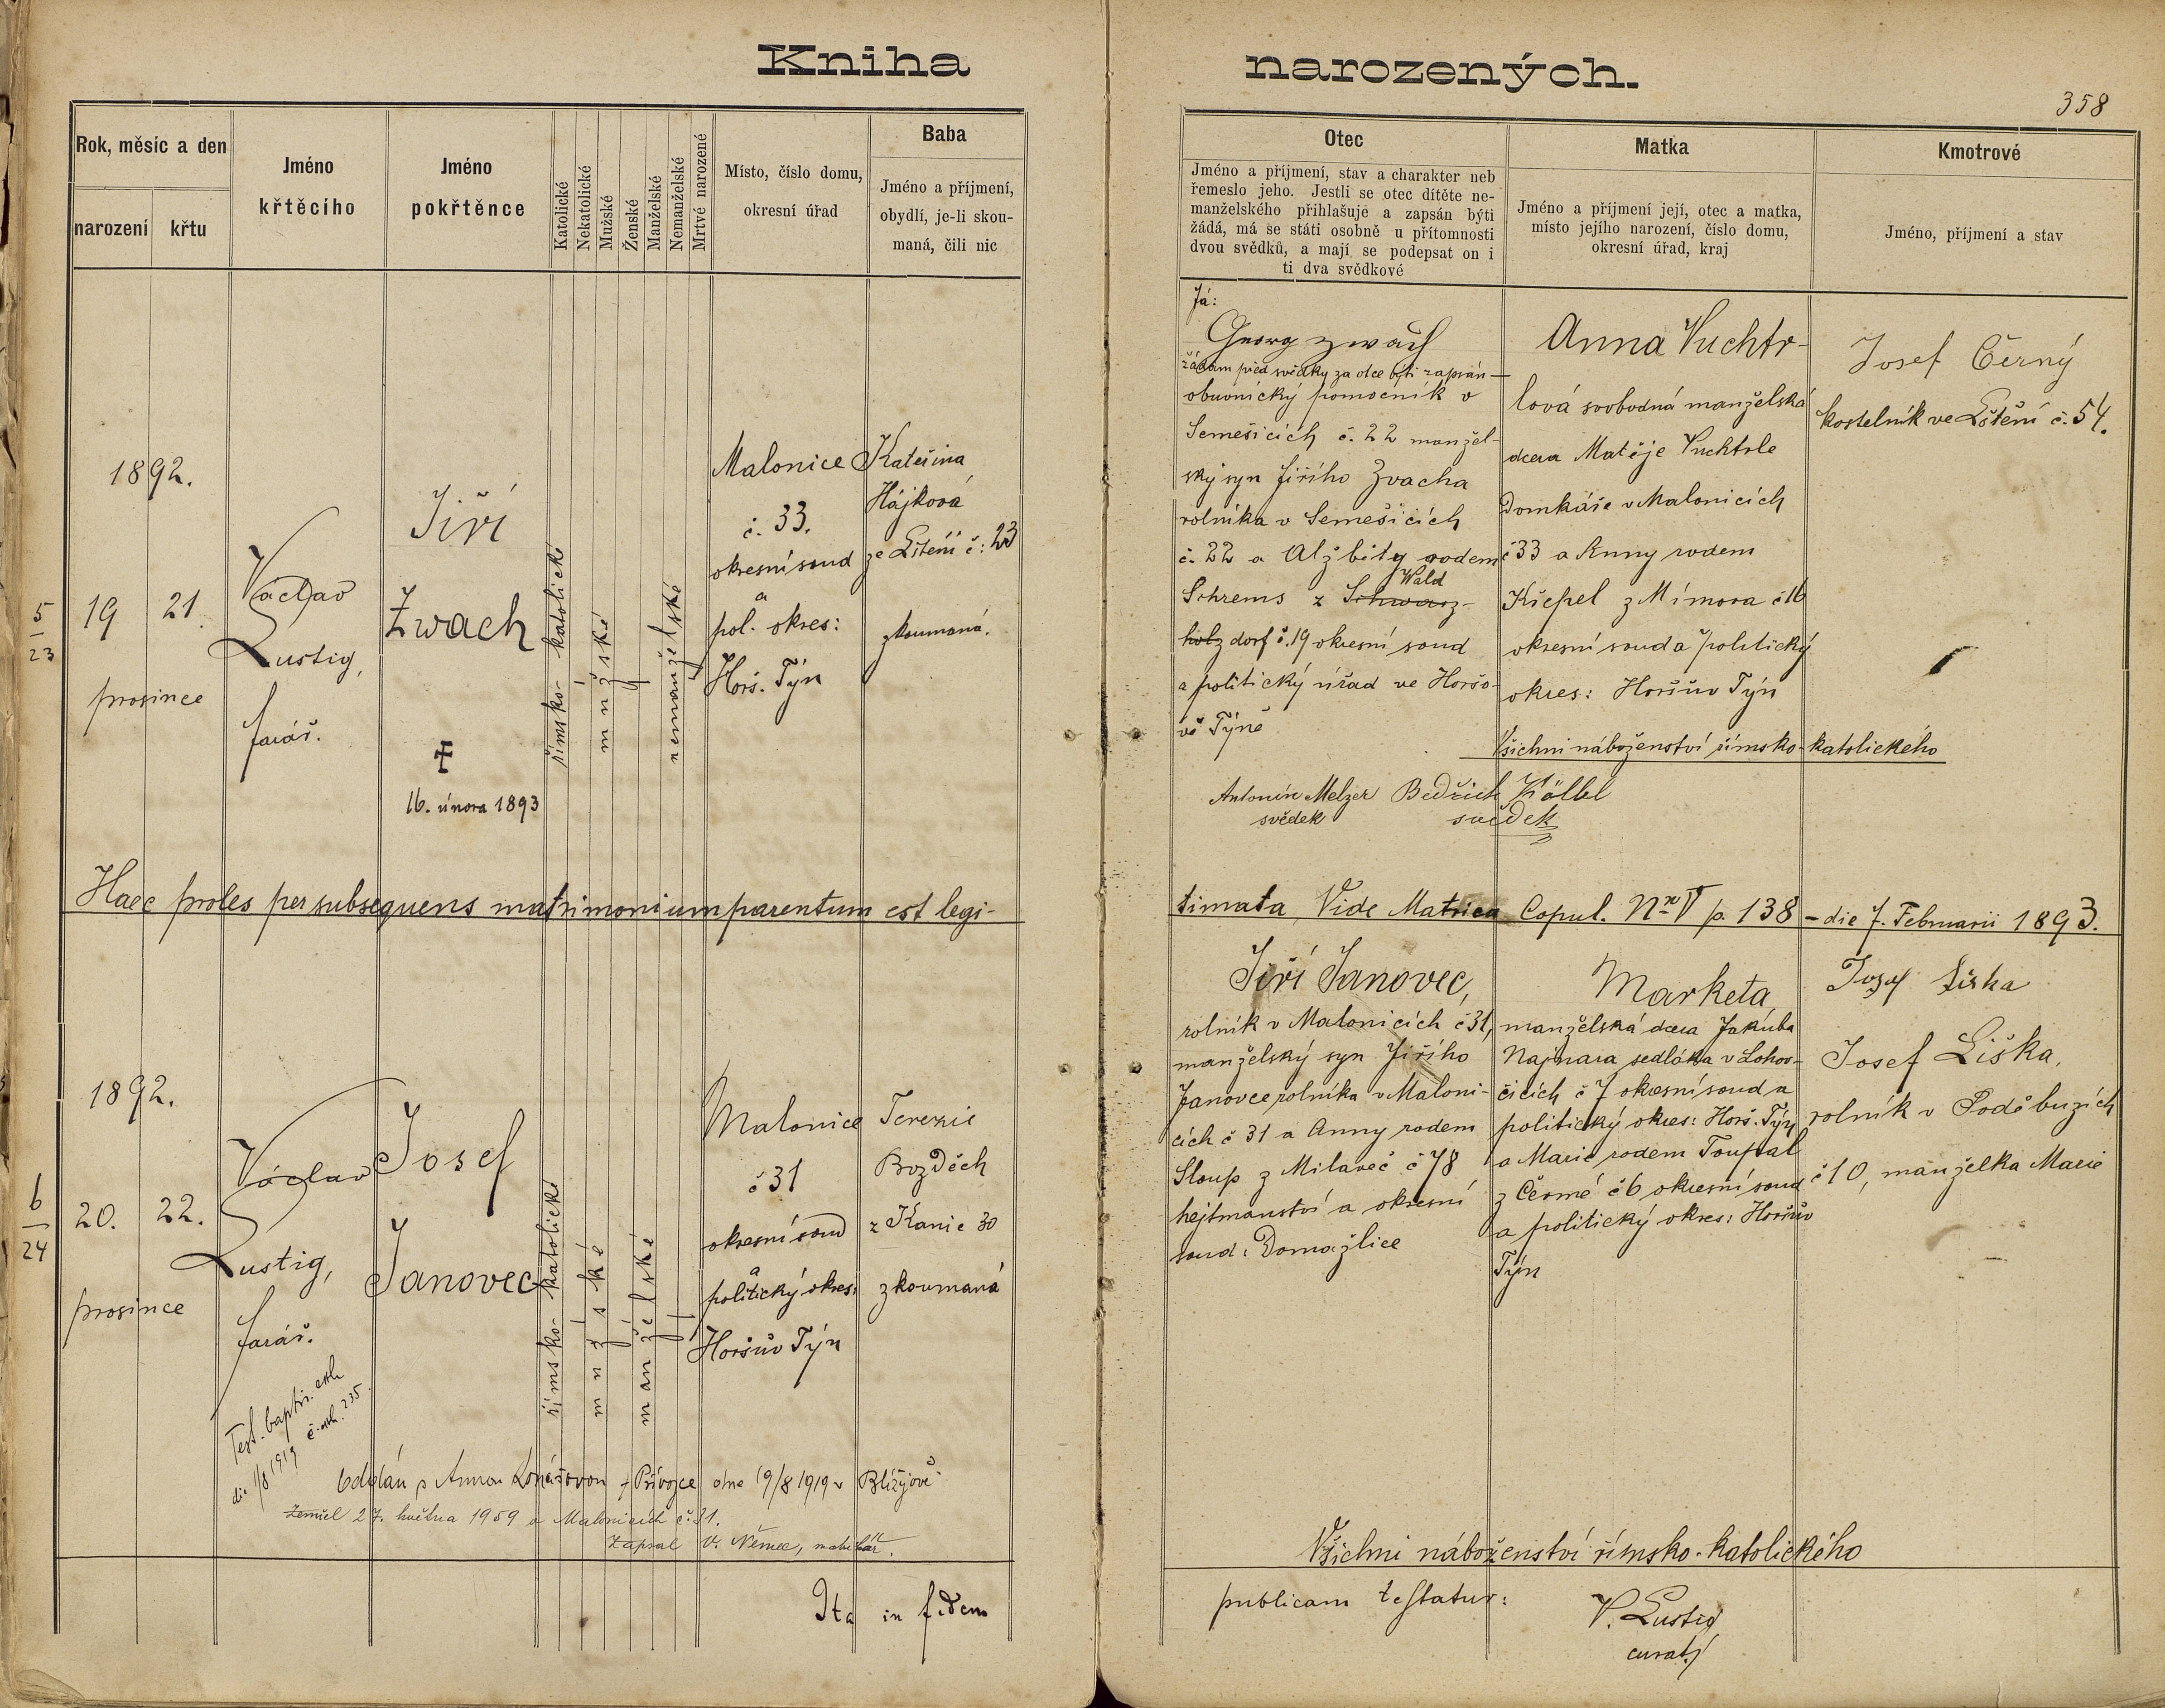 Kniha
narozených.
358
Rok, měsíc a den
narození
křtu
Jméno
křtěcího
Jméno
pokřtěnce
Katolické
Nekatolické
Mužské
Ženské
Manželské
Nemanželské
Mrtvé narozené
Místo, číslo domu,
okresní úřad
Baba
Jméno a příjmení,
obydlí, je-li skou-
maná, čili nic
Otec
Jméno a příjmení, stav a charakter neb
řemeslo jeho. Jestli se otec dítěte ne-
manželského přihlašuje a zapsán býti
žádá, má se státi osobně u přítomnosti
dvou svědků, a mají se podepsat on i
ti dva svědkové
Matka
Jméno a příjmení její, otec a matka,
místo jejího narození, číslo domu,
okresní úřad, kraj
Kmotrové
Jméno, příjmení a stav
5
23
1892.
19
21.
prosince
Václav
Lustig,
farář.
Jiří
Zwach
16. února 1893
římsko-katolické
mužské
nemanželské
Malonice
č. 33.
okresní soud
a
pol. okres:
Horš. Týn
Kateřina
Hájková
ze Lštění č: 23
zkoumaná.
Já:
Georg Zwach
žádám před svědky za otce býti zapsán
obuvnický pomocník v
Semešicích č. 22 manžel-
ský syn Jiřího Zvacha
rolníka v Semešicích
č. 22 a Alžbity rodem
Wald
Schrems z Schwarz-
holz dorf č. 19 okresní soud
a politický úřad ve Horšo-
vě Týně
Anna Vuchtr-
lová svobodná manželská
dcera Matěje Vuchtrle
Domkáře v Malonicích
č 33 a Anny rodem
Křepel z Mímova č 16
okresní soud a politický
okres: Horšův Týn
Josef Černý
kostelník ve Lštění č. 54.
Všichni náboženství římsko-katolického
Antonín Melzer
svědek
Bedřich Kölbl
svědek
Haec proles per subsequens matrimonium parentum est legi-
timata Vide Matrica Copul. Nr V p. 138 - die 7. Februarii 1893.
6
24
1892.
20.
22.
prosince
Václav
Lustig,
farář.
Josef
Janovec
římsko-katolické
mužské
manželské
Malonice
č 31
okresní soud
a
politický okres:
Horšův Týn
Terezie
Bozděch
z Kanic 30
zkoumaná
Jiří Janovec,
rolník v Malonicích č 31,
manželský syn Jiřího
Janovce rolníka v Maloni-
cích č 31 a Anny rodem
Sloup z Milaveč č 78
hejtmanství a okresní
soud: Domažlice
Marketa
manželská dcera Jakuba
Najmara sedláka v Lohov-
čicích č 7 okresní soud a
politický okres: Horš. Týn
a Marie rodem Toupal
z Čermé č 6 okresní soud
a politický okres: Horšův
Týn
Josef Liška
Josef Liška,
rolník v Poděbuzích
č 10, manželka Marie
Test. baptis. exh
die 1/8 1919 č. exh. 235.
Oddán s Annou z Přívozce dne 19/8 1919 v Blížejově
Zemřel 27. května 1959 v Malonicích č. 31.
Zapsal V. Němec, matrikář.
Všichni náboženství římsko-katolického
Ita in fidem
publicam testatur:
V. Lustig
curat.